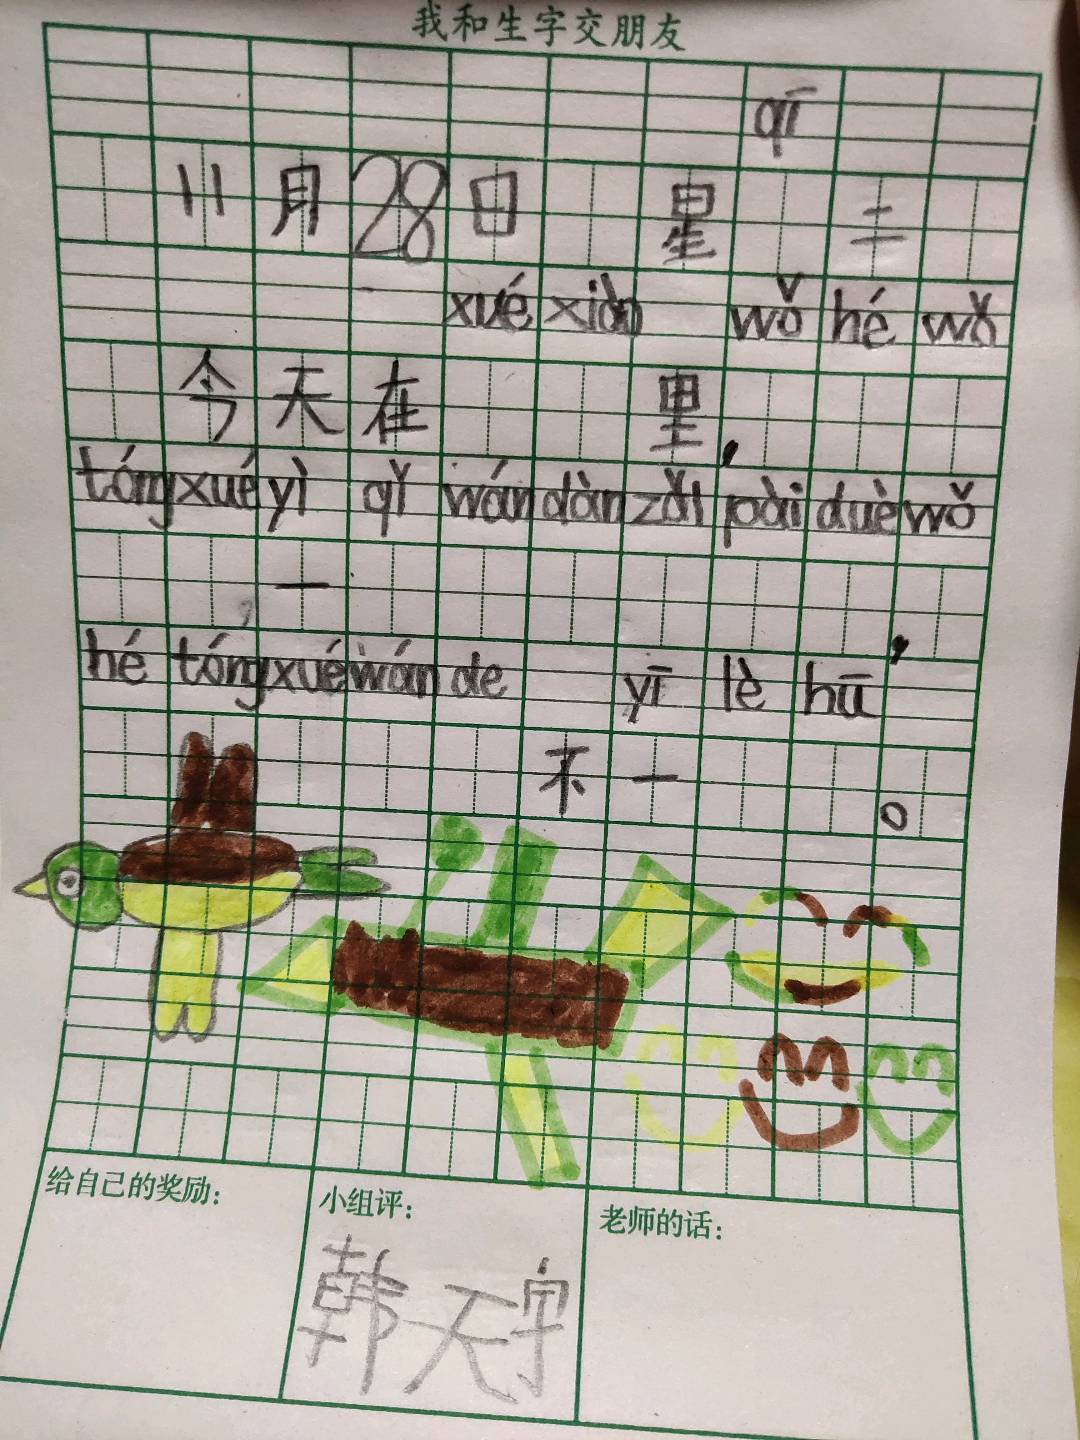 我和生字交朋友
qī
11月28日 星 二
xué xiào wǒ hé wǒ
今天在 里,
tóng xué yì qǐ wán dàn zǎi pài duè wǒ
一 ,
hé tóng xué wán de yī lè hū
不一 。
给自己的奖励:
小组评:
老师的话:
韩天宇